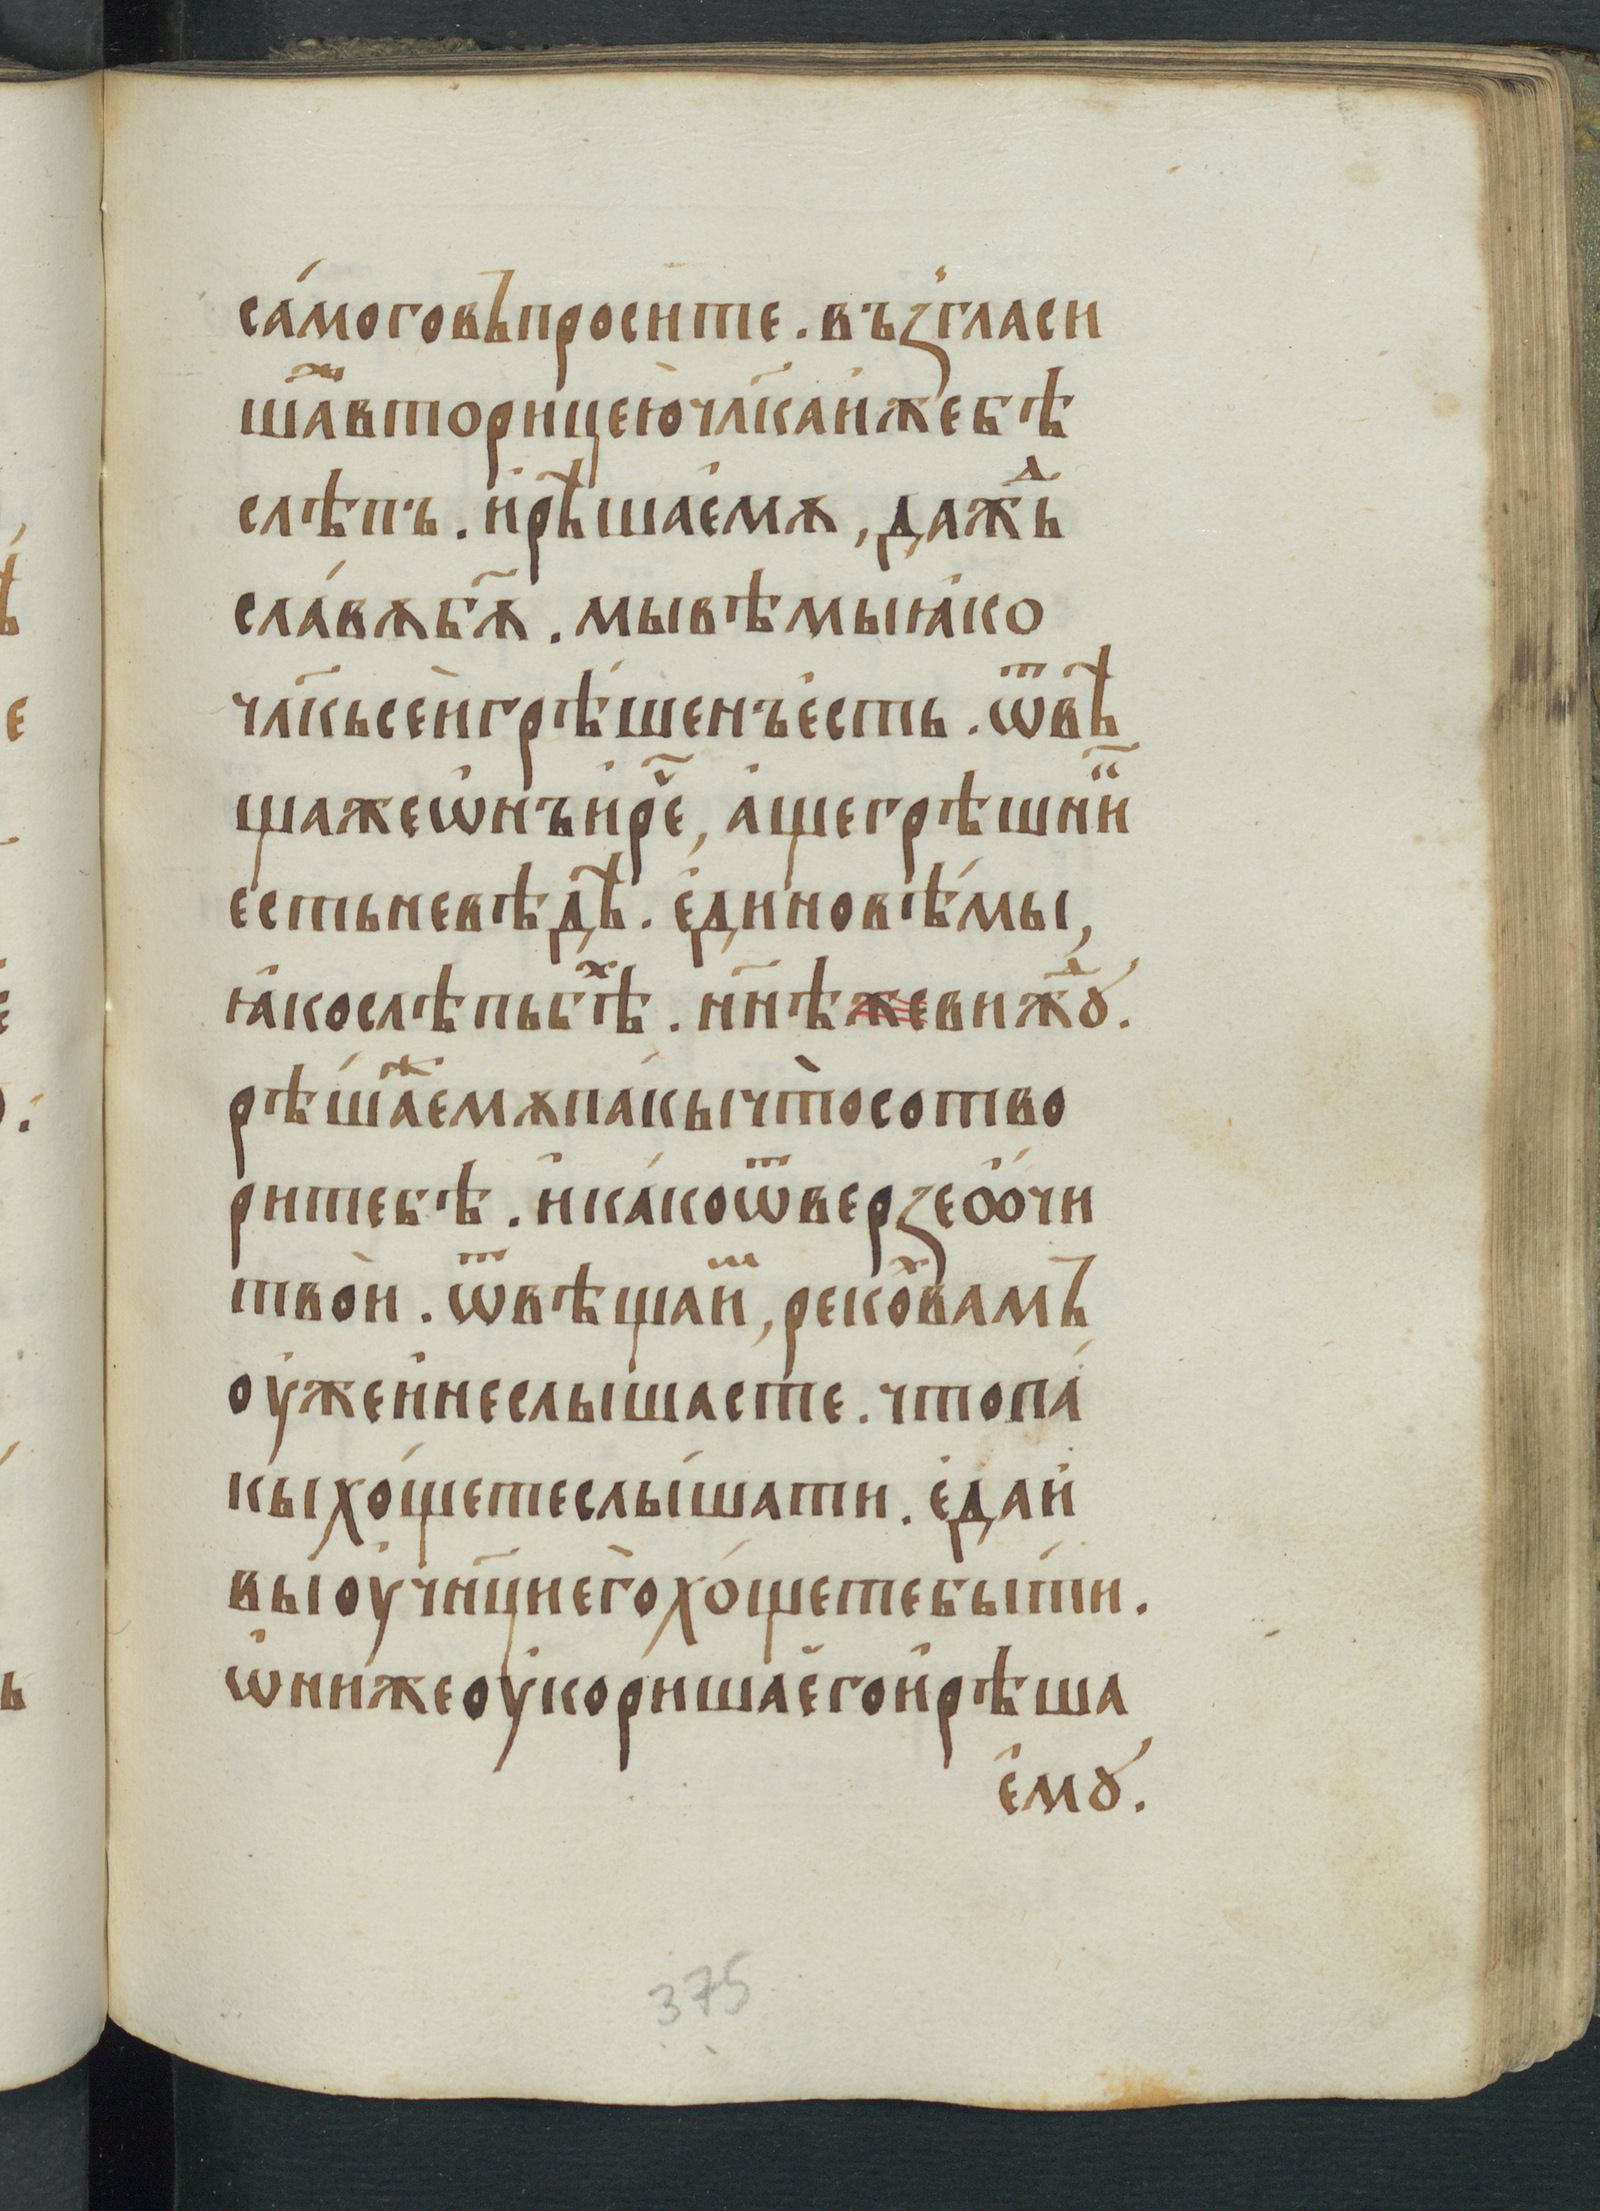 са́моговъпросите. въꙁгласи
шаⷤвторицеючл҃каи́жебѣ
слѣпъ. и҆рѣ҃шае҆мѫ, дажⷣь
сла́вѫбг҃ѫ. мывѣмыꙗ҆ко
чл҃кьсе́и҆грѣ́шенъе҆сть. ѿвѣ҃
щажеѡ҆нъи҆рч҃е, а҆щегрѣшнꙵи
естьневѣдѣ҃. е҆диновѣ́мы,
ꙗ҆кослѣпьбѣⷯ. нн҃ѣжевижⷣꙋ.
рѣшаⷤемѫпа́кычто̀сотво
ритебѣ. и҆ка́коѿверꙁео҆́чи
твои̑. ѿвѣщаиⷲ, рекоⷯвамъ
оу҆жеи҆неслы́шасте. чтопа́
кыхо́щетеслы́шати. е҆даи҆
выоу҆чн҃цие҆гохо́щетебы́ти.
ѡ҆нижеоу҆кори́шае҆гои҆рѣша
е҆мꙋ.
375